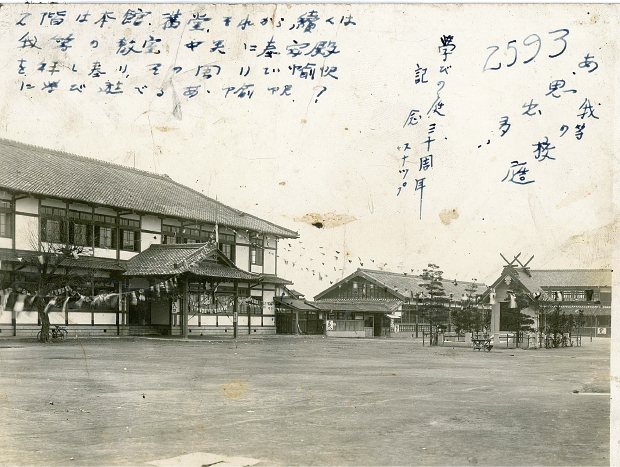 2階は本館、講堂、それから續くは
我等の教室、中央に奉安殿
を拝し奉り、その周りで愉快
に学び遊べるあゝ愉快?
學びの庭三十周年
記念スナップ
2593
あゝ我等の
思出多い
校庭